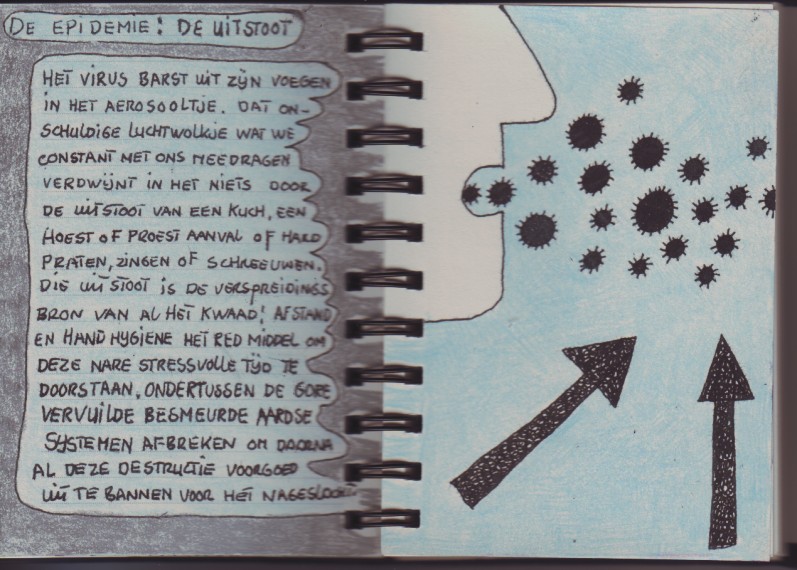 DE EPIDEMIE: DE UITSTOOT
HET VIRUS BARST UIT ZIJN VOEGEN
IN HET AEROSOOLTJE. DAT ON-
SCHULDIGE LUCHTWOLKJE WAT WE
CONSTANT MET ONS MEEDRAGEN
VERDWIJNT IN HET NIETS DOOR
DE UITSTOOT VAN EEN KUCH, EEN
HOEST OF PROEST AANVAL OF HARD
PRATEN, ZINGEN OF SCHREEUWEN.
DIE UITSTOOT IS DE VERSPREIDINGS
BRON VAN AL HET KWAAD! AFSTAND
EN HAND HYGIENE HET RED MIDDEL OM
DEZE NARE STRESSVOLLE TIJD TE
DOORSTAAN, ONDERTUSSEN DE GORE
VERVUILDE BESMEURDE AARDSE
SYSTEMEN AFBREKEN OM DAARNA
AL DEZE DESTRUCTIE VOORGOED
UIT TE BANNEN VOOR HET NAGESLACHT